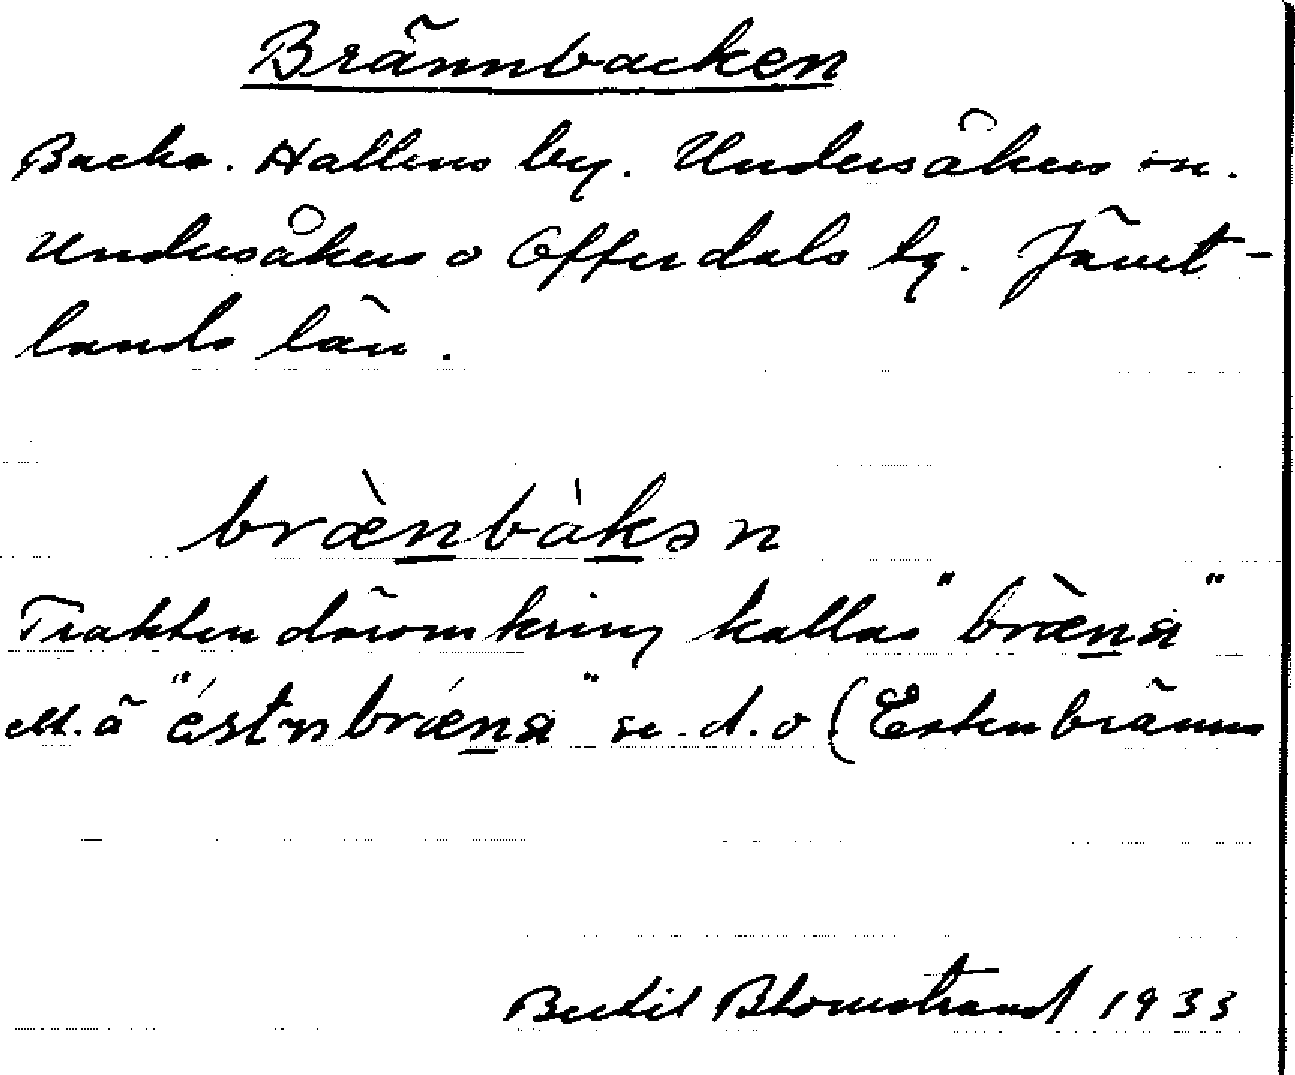 Brännbacken
Backe. Hallens by. Undersåkers sn.
Undersåkers o Offerdals tg. Jämt-
lands län.
bræ̀nbàkən
Trakten däromkring kallas "bræ̀na"
el. å "éstn bræna" se. d. o (Estenbränna
Bertil Blomstrand 1933